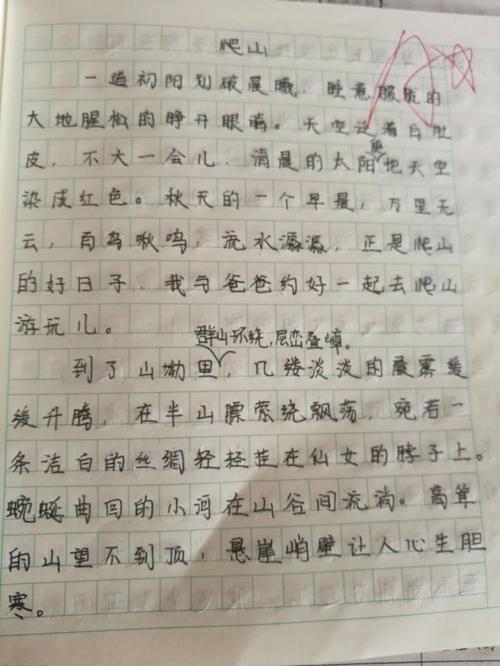 爬山
一道初阳划破晨曦，睡意朦胧的
大地腥松的睁开眼睛。天空泛着白肚
皮，不大一会儿，清晨的太阳就把天空
染成红色。秋天的一个早晨，万里无
云，百鸟啾鸣，流水潺潺，正是爬山
的好日子，我与爸爸约好一起去爬山
游玩儿。
群山环绕，层峦叠嶂。
到了山坳里，几缕淡淡的晨雾缓
缓升腾，在半山腰萦绕飘荡，宛若一
条洁白的丝绸轻轻挂在仙女的脖子上。
蜿蜒曲回的小河在山谷间流淌。高耸
的山望不到顶，悬崖峭壁让人心生胆
寒。